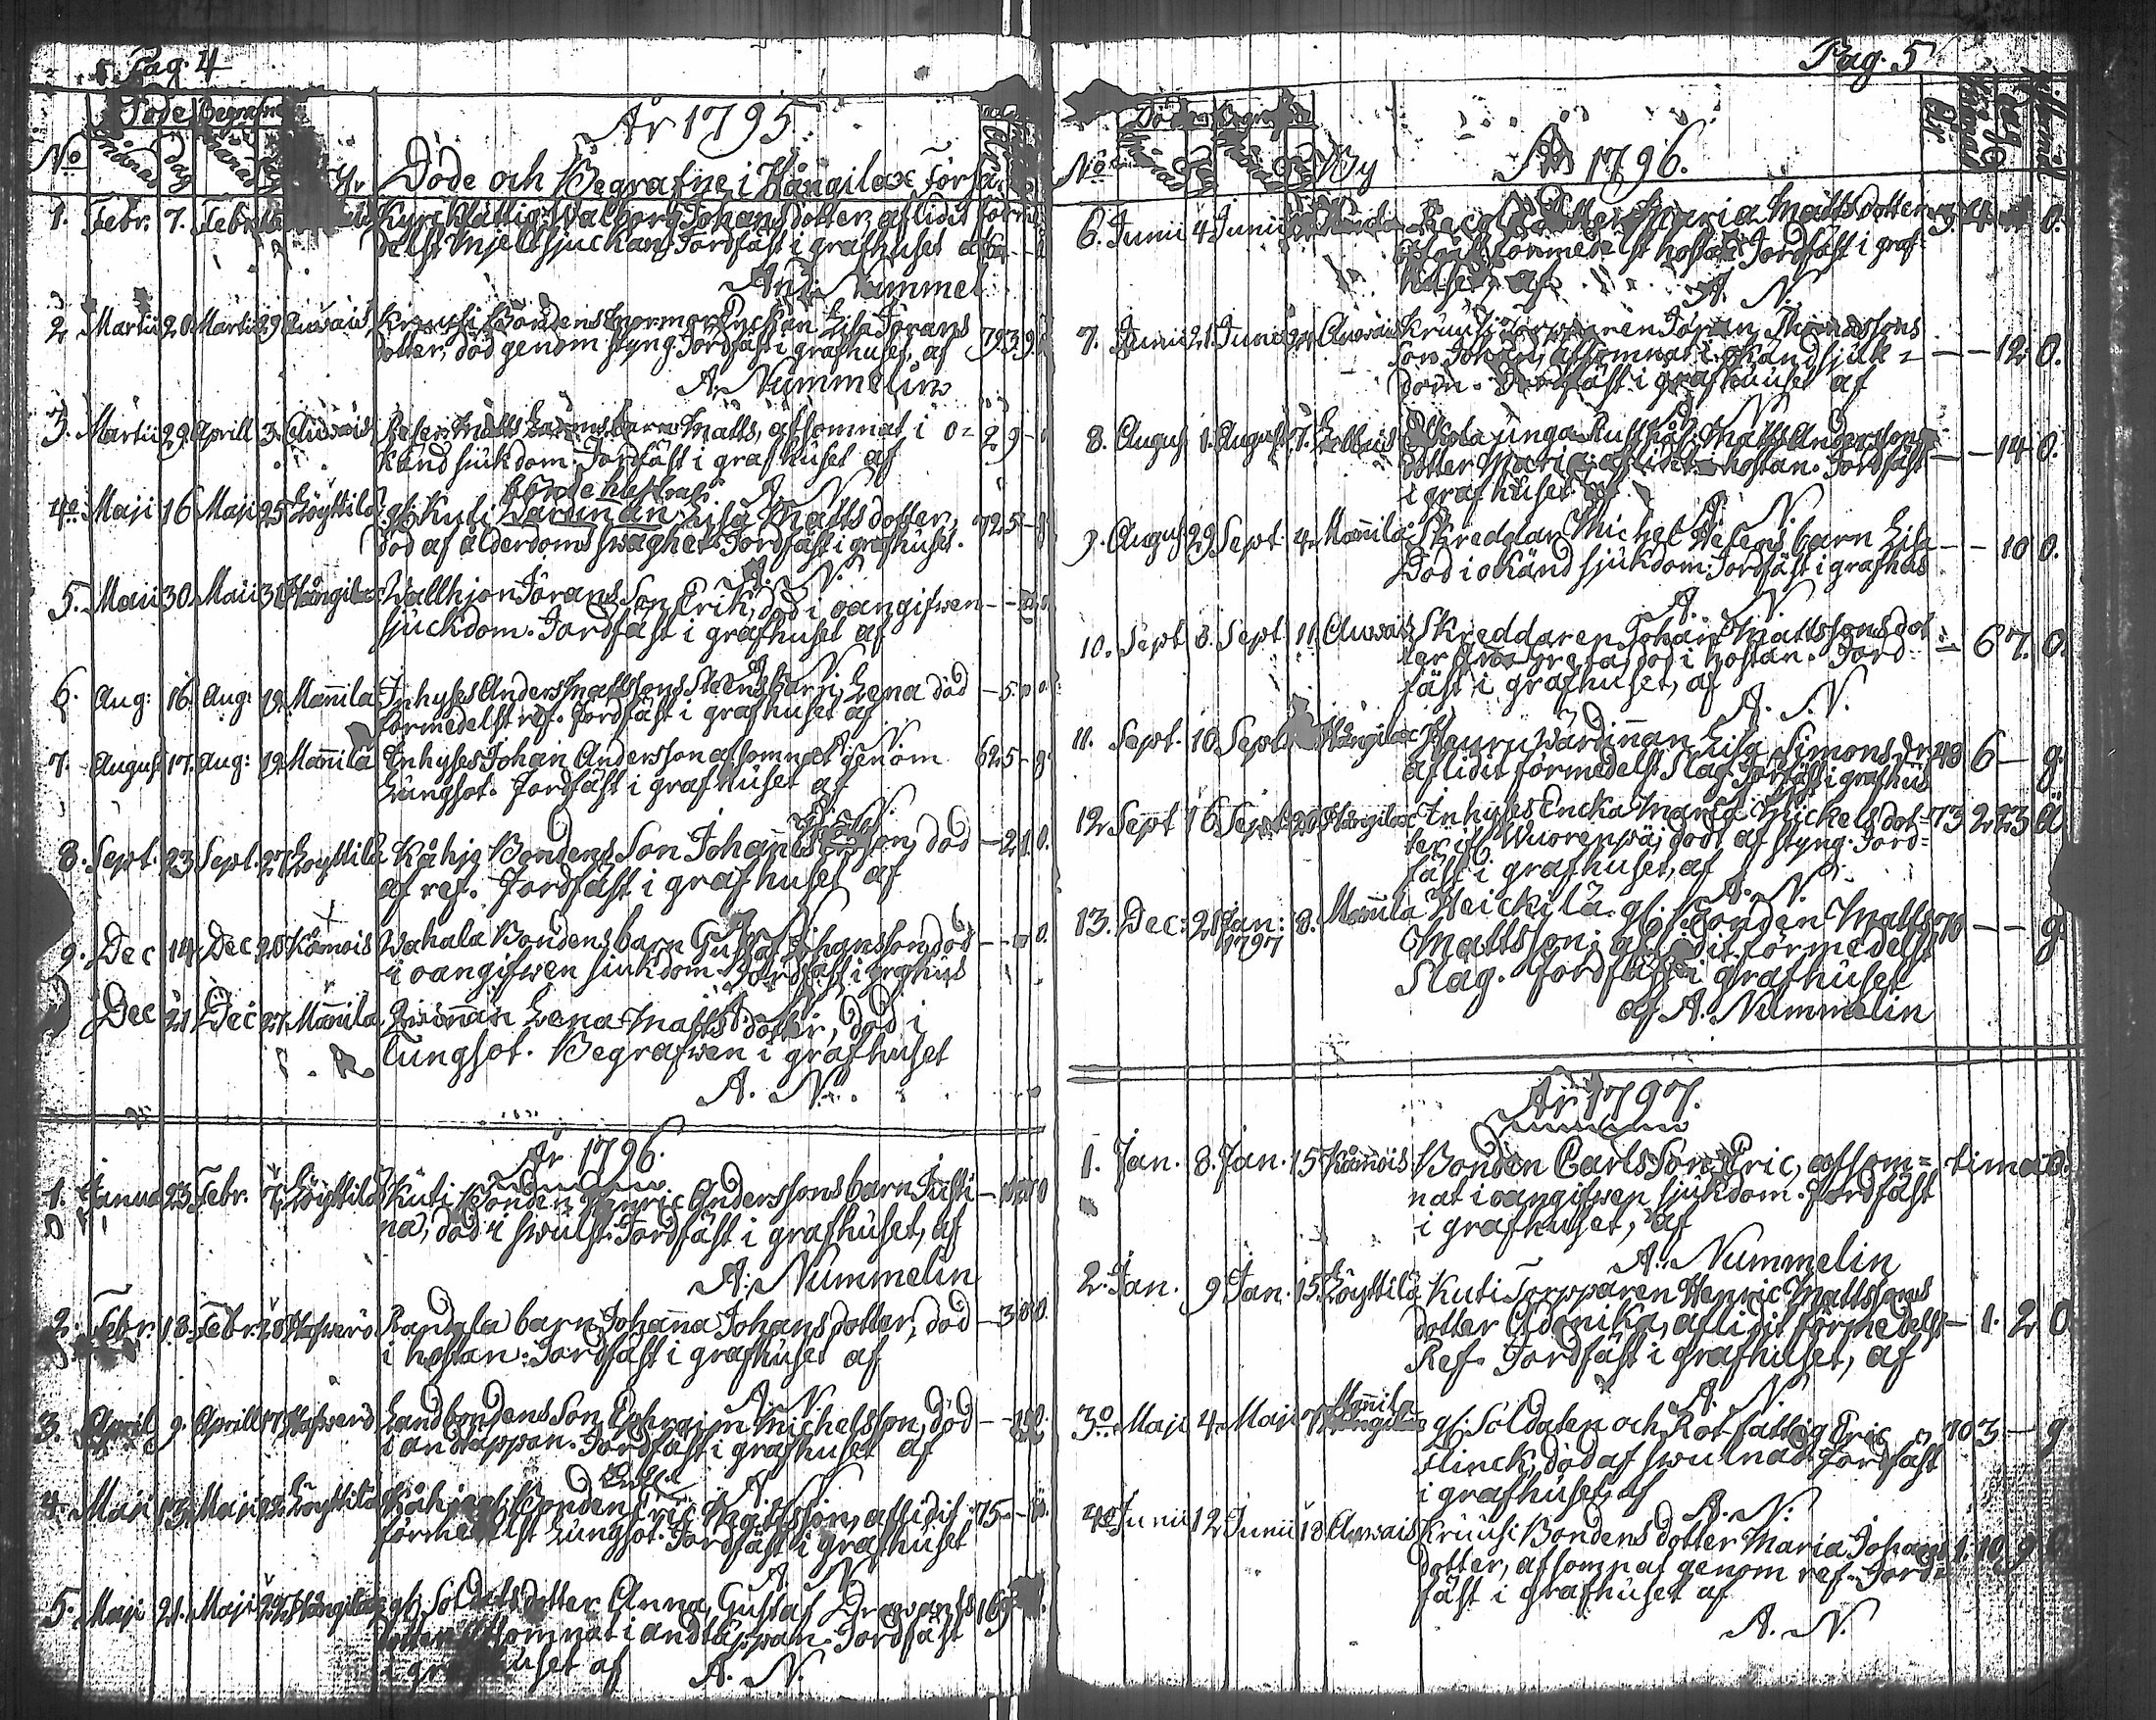 Pag. 4
Döde Begrafne
År 1795
No Månad dag Månad
Döde och Begrafne i Kångilax Församl.
1. Febr. 7. Febr. Kyrckfattig Walborg Johansdotter, afliden förme
delst Mjeltsjuckan. Jordfäst i grafhuset af
And. Nummel
2 Martii 28 Martii 29 Auwais Kruusi Bondens mormor Enckan Lisa Jörans
dotter, död genom styng. Jordfäst i grafhuset, af 79 3 9
A. Nummelin
3. Martii 29. Aprill 3. Auwais Matts barn Matts, afsomnat i o= 2 9
känd siukdom. Jordfäst i grafhuset af
bonde hustrun A. N.
4. Maji 16 Maji 25 Löyttilä gl. Kuti Wärdinnan Lisa Mattsdotter, 72 5 - g
död af ålderdoms swaghet. Jordfäst i grafhuset.
A. N.
5. Maii 30. Maii 31 Kångilax Wallhjon Jörans Son Erik, död i oangifwen
sjuckdom. Jordfäst i grafhuset af
A. N.
6. Aug: 16. Aug: 19. Mannila Inhyses Anders Mattssons barn Lena död - 5
förmedelst ref. Jordfäst i grafhuset af
A. N.
7. August 17. Aug: 19. Mannila Inhyses Johan Andersson afsomnat genom 62 5 - g.
Lungsot. Jordfäst i grafhuset af
A. N.
8. Sept. 23 Sept. 27 Löyttilä Kåhjo Bondens Son Johan son, död - 2 1. 0.
af ref. Jordfäst i grafhuset af
A. N.
9. Dec 14. Dec 20 Kåmois Wahala Bondens barn Gustaf Johansson, död 0.
i oangifwen siukdom. Jordfäst i grafhus
A. N.
Dec 21 Dec 27. Mannila Lena Matts dotter, död i
Lungsot. Begrafwen i grafhuset
A. N.
År 1796.
1. Janua 23. Febr. 7. Löyttilä Kuti Bonden Henric Anderssons barn Justi
na, död i swulst. Jordfäst i grafhuset, af
A. Nummelin
2. Febr. 18. Febr. 28 Hafwerö Randala barn Johanna Johans dotter, död - 3
i hostan. Jordfäst i grafhuset af
A. N.
3. April 9. Aprill 17 Hafwerö Landbondens Son Ephraim Michelsson, död
i andtäppan. Jordfäst i grafhuset af
A. N.
4. Maii 13. Maii 22. Löyttilä Kåhjo gl. Bonden Eric Mattsson, aflidit 75
förmedelst Lungsot. Jordfäst i grafhuset
A. N.
5. Maji 21. Maji 22. Kångilax gl. Soldats dotter Anna Gustaf Drawants 16 9
dotter afsomnat i andtäppan. Jordfäst
i grafhuset af A. N.
Pag. 5
År 1796.
No By
6. Junii 4. Junii dotter Maria Mattsdotter 3. 4. 0.
förmedelst hostan. Jordfäst i graf=
huset, af
A. N.
7. Junii 21. Junii Auwais Kruusi Torpparen Jöran Thomassons
Son Johan, afsomnat i okänd sjuk= - - 12 0.
dom. Jordfäst i grafhuuset af
A. N.
8. August 1. August 7. unga Matts Anderssons
dotter Maria, aflidit i hostan. Jordfäst - - 14 0.
i grafhuset af
A. N.
9. August 29 Sept. 4. Mannila Skreddar Michel barn Lisa - - 10 0.
Död i okänd sjukdom. Jordfäst i grafhus
A. N.
10. Sept 8. Sept 11. Auwais Skreddaren Johan Mattssons dot
ter Greta, död i hostan. Jord= - 6 7. 0.
fäst i grafhuset, af
A. N.
11. Sept. 10 Sept Kångilax Heuru Wärdinnan Lisa Simonsdr 48 6 - g.
aflidit förmedelst Slag. Jordfäst i grafhus
12. Sept 16 Sept 20 Kångilax Inhyses Encka Maria Mickelsdot= 73 2 23
ter ifl. Wuorenpä, död af styng. Jord=
fäst i grafhuset, af
A. N.
13. Dec: 21 Jan: 8. Mannila Heickilä gl. Bonden Matts 70 - - g.
1797
Mattsson, aflidit förmedelst
Slag. Jordfäst i grafhuset
af A. Nummelin
År 1797.
1. Jan. 8. Jan. 15 Kåmois Bonden Carls Son Eric, afsom= timar
nat i oangifwen sjukdom. Jordfäst
i grafhuset, af
A. Nummelin
2. Jan. 9 Jan. 15. Löyttilä Kuti Torpparen Henric Mattssons
dotter Udonika, aflidit förmedelst - 1. 2 0
Ref. Jordfäst i grafhuset, af
A. N.
Mannila
3. Maji 4. Maji 7 Kångilax gl. Soldaten och Rotfattig Eric 70 3 - g
Flinck, död af swulnad. Jordfäst
i grafhuset, af
A. N.
4. Junii 12 Junii 18 Auwais Kruusi Bondens dotter Maria Johans 1. 10 9
dotter, afsomnat genom ref. Jord=
fäst i grafhuset af
A. N.